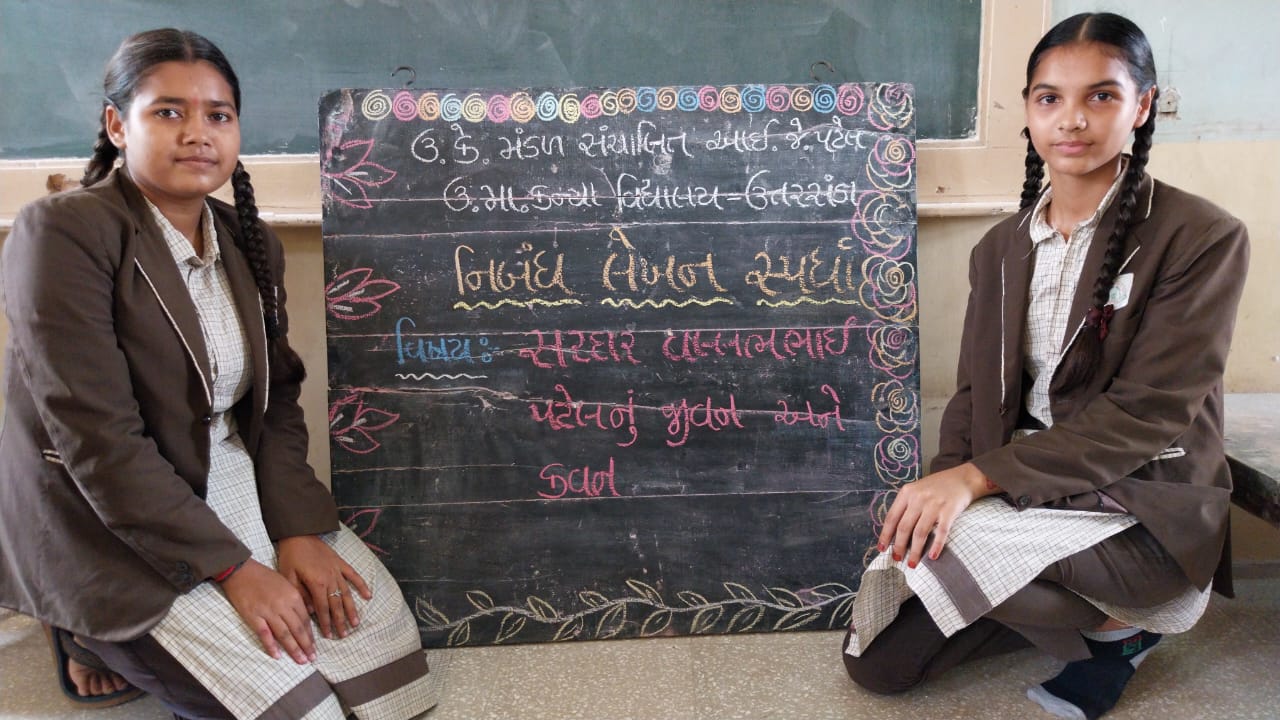 ઉ. કે. મંડળ સંચાલિત આઈ. જે. પટેલ
ઉ.મા. કન્યા વિદ્યાલય-ઉત્તરસંડા
નિબંધ લેખન સ્પર્ધા
વિષય: સરદાર વલ્લભભાઈ
પટેલનું જીવન અને
કવન